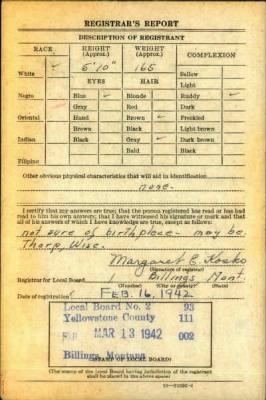 REGISTRAR'S REPORT
DESCRIPTION OF REGISTRANT
RACE HEIGHT (Approx.) WEIGHT (Approx.) COMPLEXION
White ✓ 5' 10" 165 Sallow
EYES HAIR Light
Negro Blue ✓ Blonde Ruddy ✓
Gray Red Dark
Oriental Hazel Brown ✓ Freckled
Brown Black Light brown
Indian Black Gray ✓ Dark brown
Bald Black
Filipino
Other obvious physical characteristics that will aid in identification
none.
I certify that my answers are true; that the person registered has read or has had
read to him his own answers; that I have witnessed his signature or mark and that
all of his answers of which I have knowledge are true, except as follows:
not sure of birthplace - may be
Thorp, Wisc.
Margaret E. Kosko
(Signature of registrar)
Registrar for Local Board 1 Billings Mont.
(Number) (City or county) (State)
Date of registration FEB. 16, 1942
Local Board No. 2 93
Yellowstone County 111
MAR 13 1942 002
Billings, Montana
(STAMP OF LOCAL BOARD)
(The stamp of the Local Board having jurisdiction of the registrant
shall be placed in the above space)